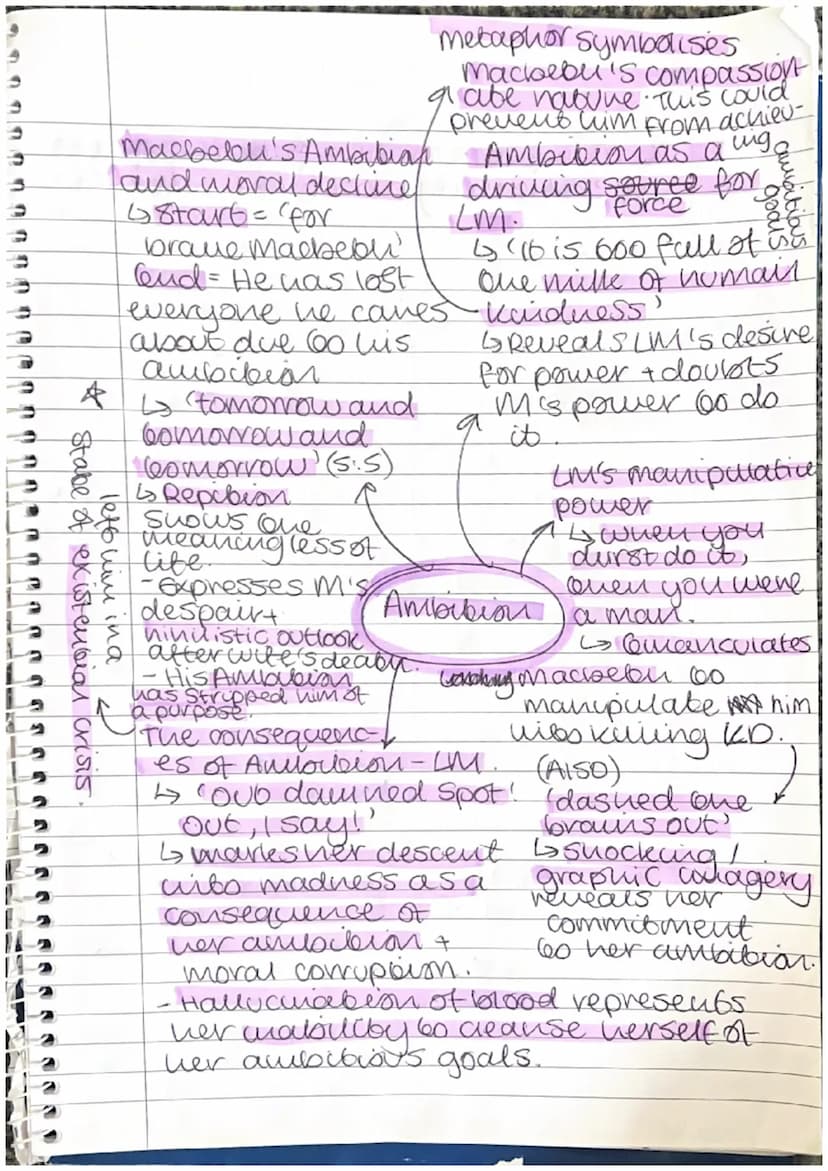 metaphor symbolises
Macbeth's compassion-
ate nature. This could
prevent him from achiev-
ing
ambitious
goals
Macbeth's Ambition
and moral decline
↳ Start = 'for
brave Macbeth'
End = He has lost
everyone he cares
about due to his
ambition
↳ 'tomorrow and
tomorrow and
tomorrow' (5.5)
↳ Repition
shows the
meaningless of
life.
- Expresses M's
despair +
nihilistic outlook
after wife's death.
- His Ambition
has stripped him of
a purpose.
* left him in a
state of existential crisis.
Ambition as a
driving source for
force
LM.
↳ 'It is too full of
the milk of human
kindness'
↳ Reveals LM's desire
for power + doubts
M's power to do
it.
Ambition
LM's manipulative
power
↳ when you
durst do it,
then you were
a man.
↳ Emanculates
Macbeth to
manipulate him
into killing KD.
(Also)
'dashed the
brains out'
↳ Shocking /
graphic imagery
reveals her
commitment
to her ambition.
The consequenc-
es of Ambition - LM.
↳ 'Out damned spot!
out, I say!'
↳ marks her descent
into madness as a
consequence of
her ambition +
moral corruption.
- Hallucination of blood represents
her inability to cleanse herself of
her ambitious goals.